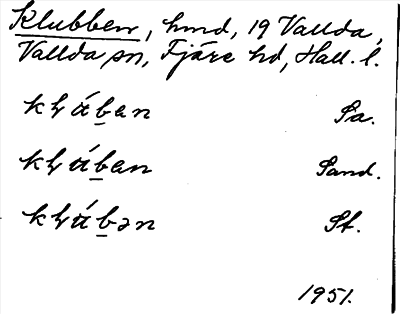 Klubben, hmd, 19 Vallda,
Vallda sn, Fjäre hd, Hall. l.
kḷúban Sa.
kḷúban Sand.
kḷúbən St.
1951.